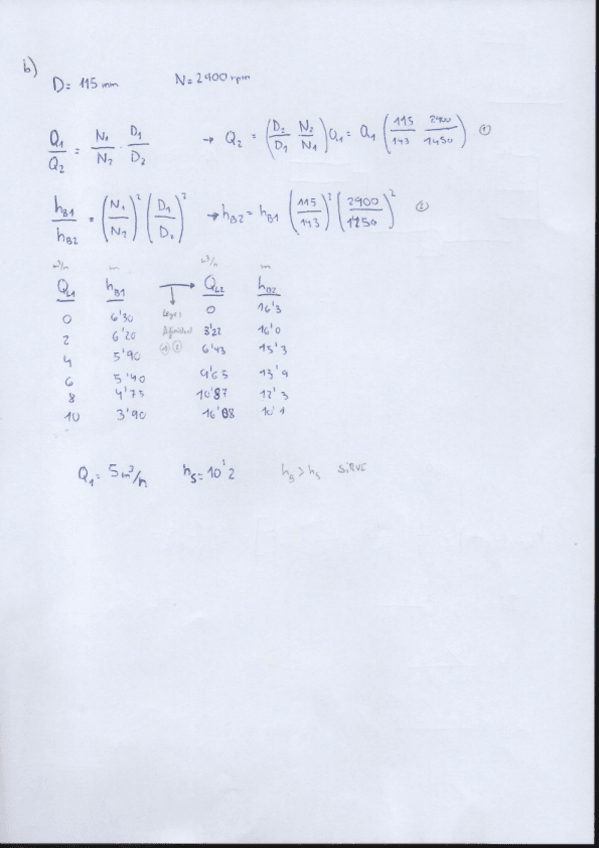 b)
D = 115 mm N = 2900 rpm
Q1/Q2 = N1/N2 · D1/D2 → Q2 = (D2/D1 N2/N1) Q1 = Q1 (115/143 2900/1450) ①
hB1/hB2 = (N1/N2)² (D1/D2)² → hB2 = hB1 (115/143)² (2900/1450)² ②
m³/h m m³/h m
QL1 hB1 → QL2 hB2
0 6'30 Leyes 0 16'3
2 6'20 Afinidad 3'22 16'0
4 5'90 ① ② 6'43 15'3
6 5'40 9'65 13'9
8 4'75 10'87 12'3
10 3'90 16'08 10'1
Q1 = 5 m³/h hS = 10'2 hB > hS SIRVE